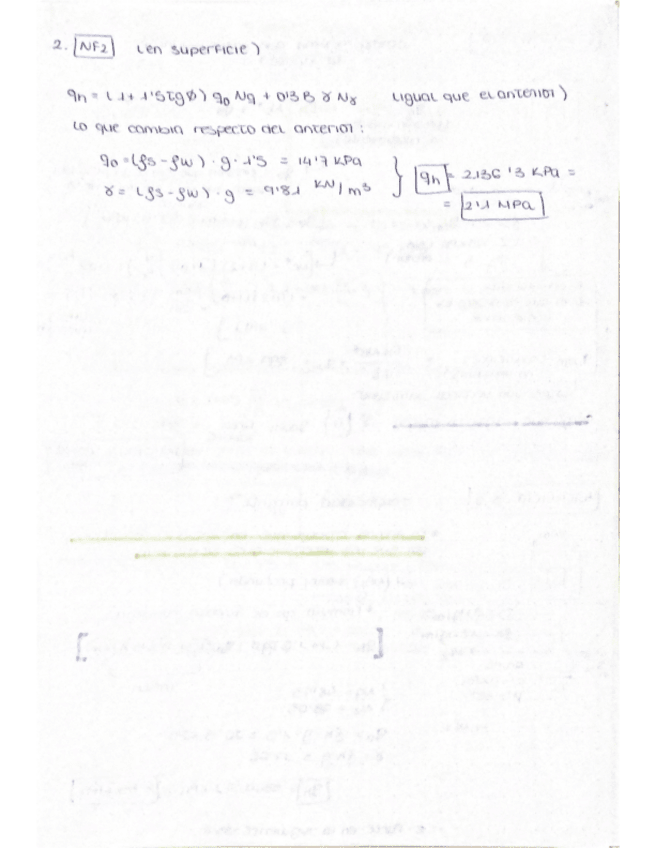 2. NF2 (en superficie)
qh = (1 + 1'5 tgϕ) q0 Nq + 0'3 B γ Nγ (igual que el anterior)
lo que cambia respecto del anterior:
q0 = (ρs - ρw) · g · 1'5 = 14'7 kPa
γ = (ρs - ρw) · g = 9'81 kN/m3
qh = 2136'3 kPa =
= 2'1 MPa